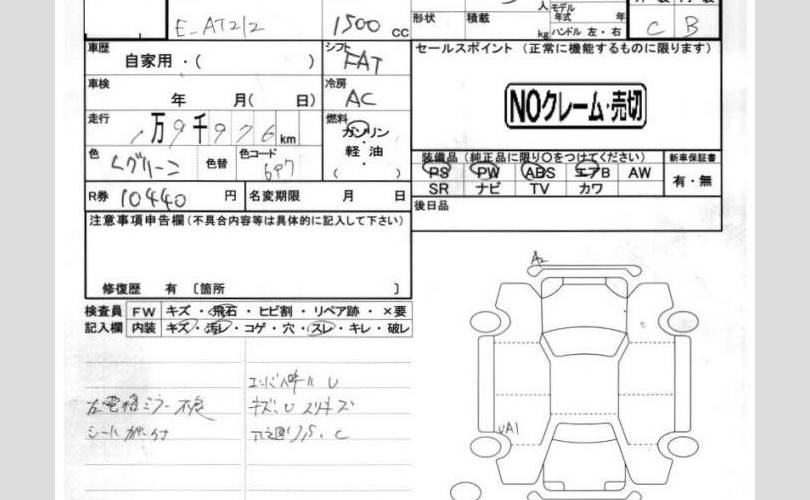 人
モデル年式 年
形状
積載 kg
ハンドル 左・右
C B
E-AT212
1500 cc
車歴
自家用・( )
シフト
FAT
セールスポイント (正常に機能するものに限ります)
車検
年 月( 日)
冷房
AC
NOクレーム・売切
走行
1万9千976km
燃料
ガソリン
軽・油
( )
色
Lグリーン
色替
色コード
6P7
装備品 (純正品に限り○をつけてください)
新車保証書
PS PW ABS エアB AW
SR ナビ TV カワ
有・無
R券 10440 円
名変期限 月 日
後日品
注意事項申告欄 (不具合内容等は具体的に記入して下さい)
修復歴 有 〔箇所 〕
検査員 FW キズ・飛石・ヒビ割・リペア跡・×要
記入欄 内装 キズ・汚レ・コゲ・穴・スレ・キレ・破レ
A2
左電格ミラー不良
キズ、U スリキズ
UA1